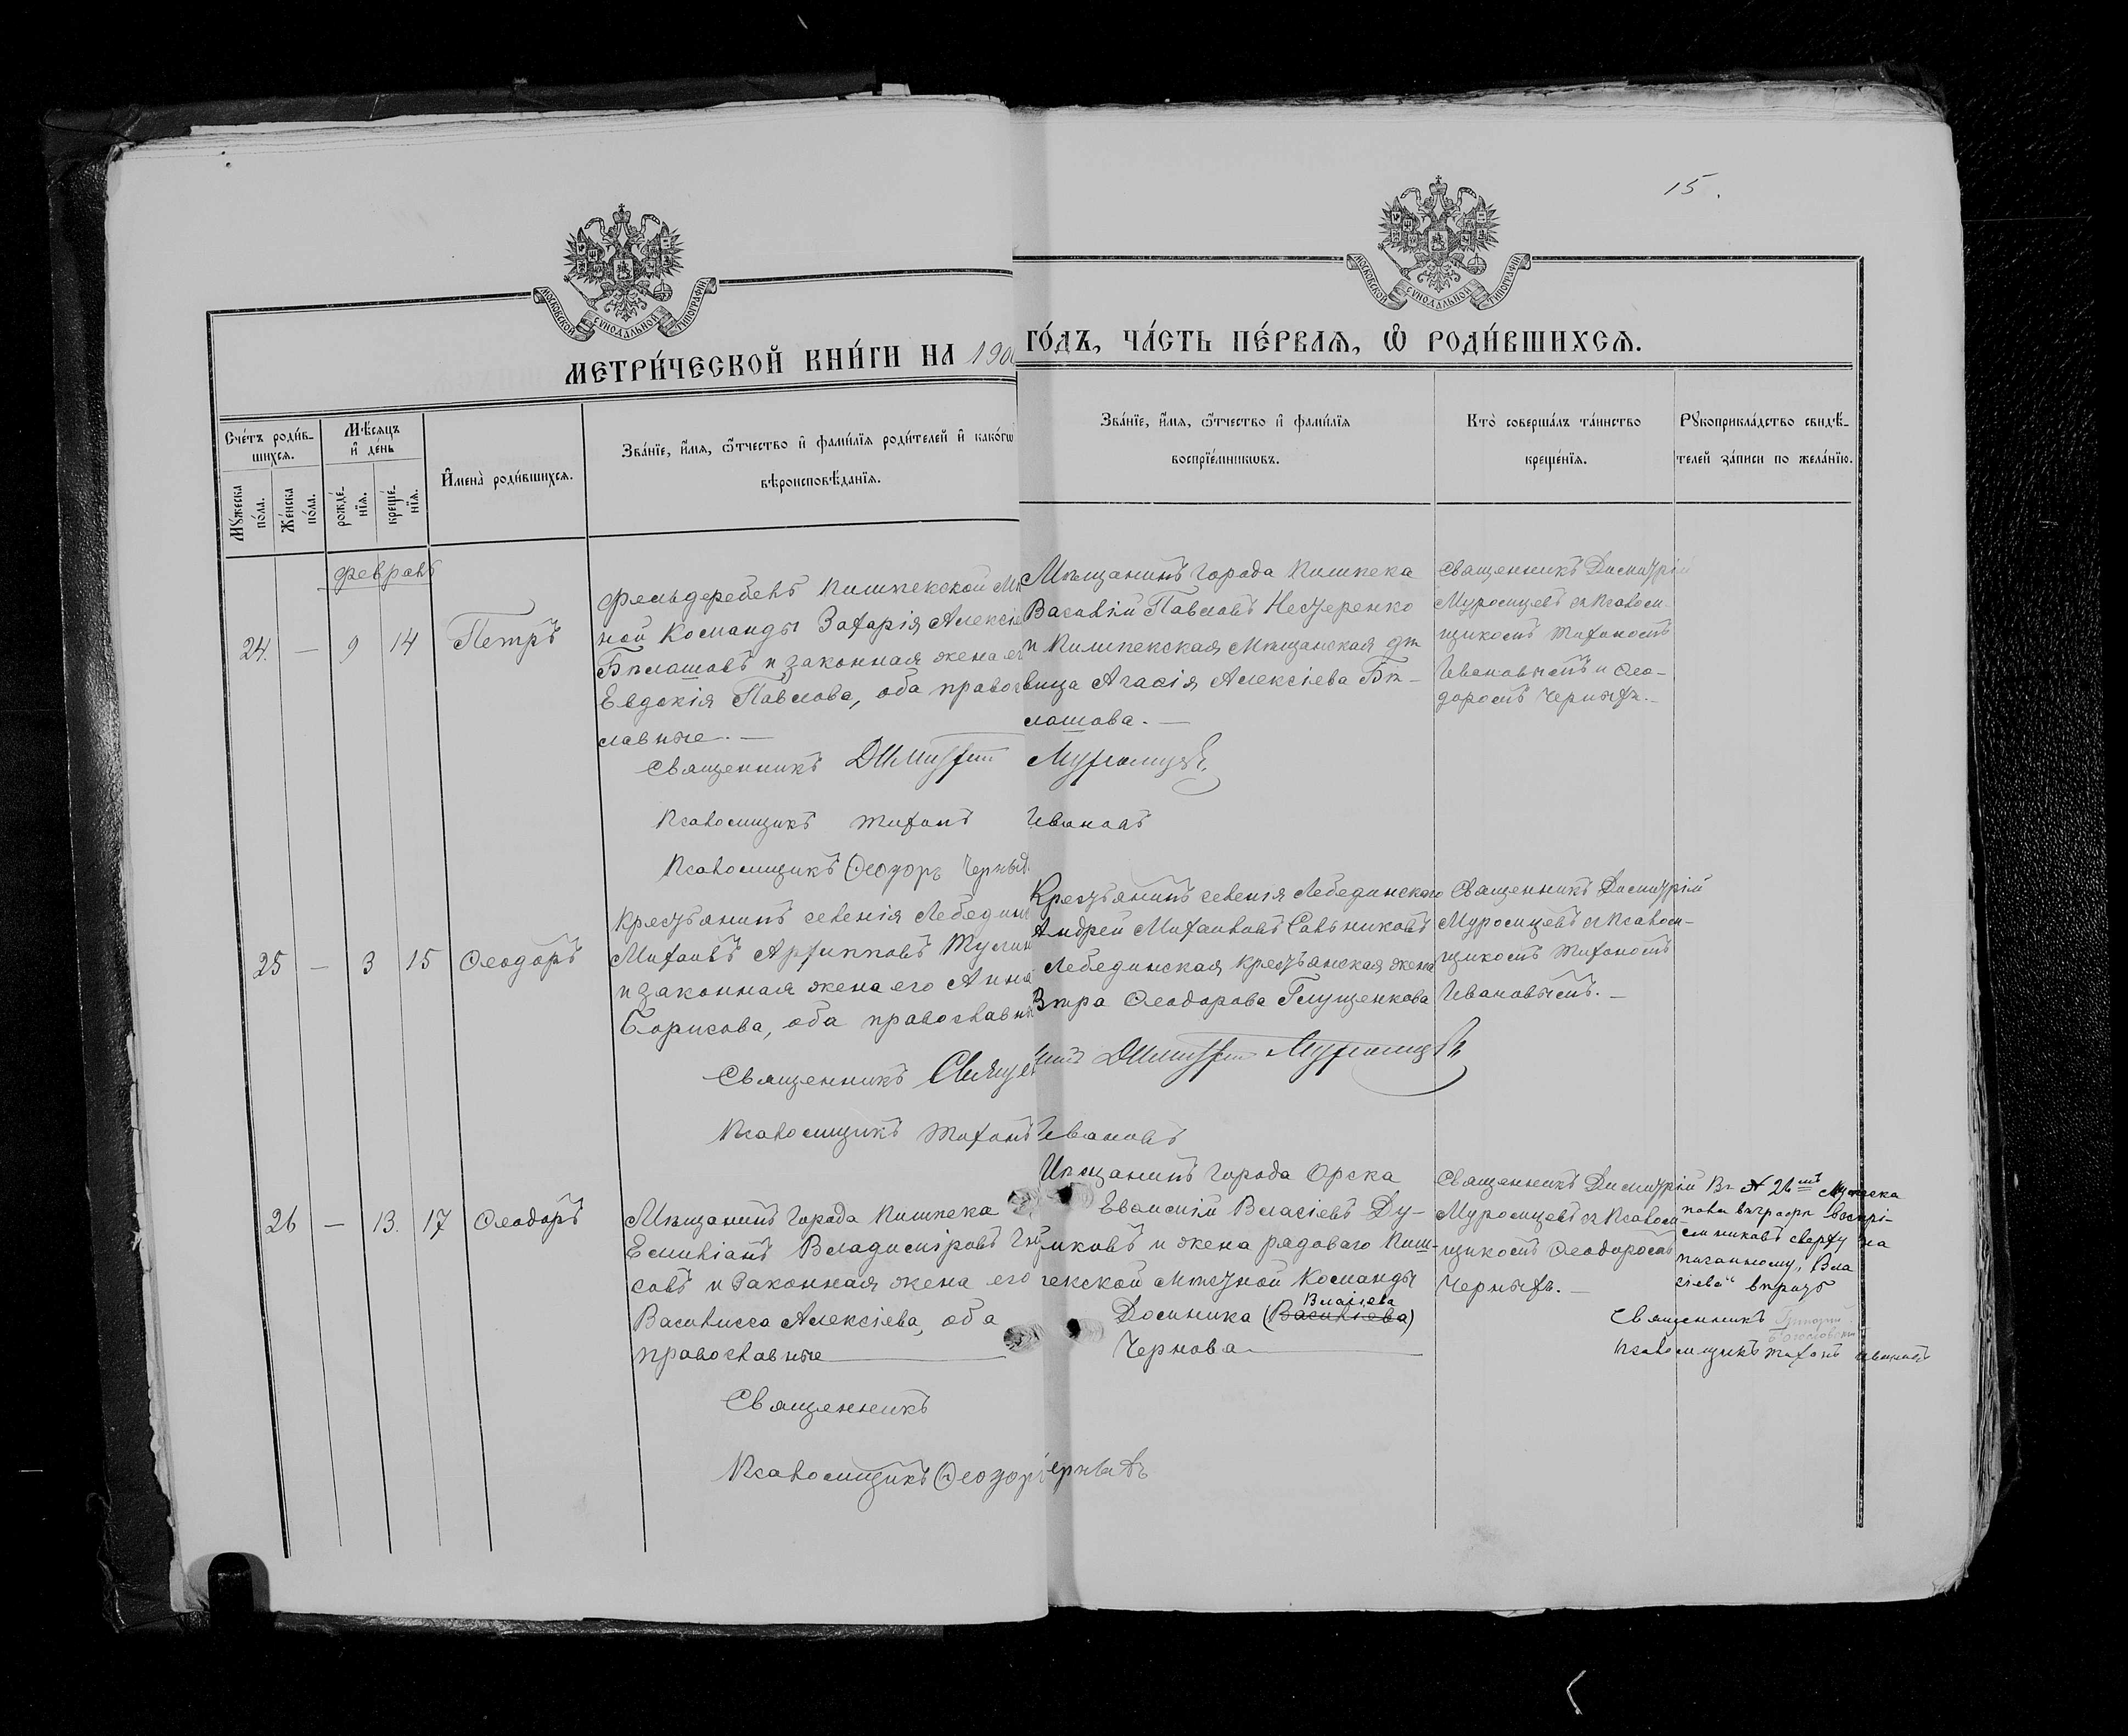 15.
МОСКОВСКОЙ СѴНОДАЛЬНОЙ ТИПОГРАФІИ
МОСКОВСКОЙ СѴНОДАЛЬНОЙ ТИПОГРАФІИ
МЕТРИ́ЧЕСКОЙ КНИ́ГИ НА 190
ГО́ДЪ, ЧА́СТЬ ПЕ́РВАЯ, Ѡ҆ РОДИ́ВШИХСЯ.
Сче́тъ роди́в-
шихся.
Мꙋ́жеска
по́ла.
Же́нска
по́ла.
Мѣ́сяцъ
и҆ де́нь
рожде́-
нїя.
креще́-
нїя.
И҆мена̀ роди́вшихся.
Зва́нїе, и҆́мя, ѻ҆́тчество и҆ фами́лїя роди́телей и҆ како́гѡ
вѣроисповѣ́данїя.
Зва́нїе, и҆́мя, ѻ҆́тчество и҆ фами́лїя
воспрїе́мникѡвъ.
Кто̀ соверша́лъ та́инство
креще́нїя.
Рꙋкоприкла́дство свидѣ́-
телей за́писи по жела́нїю.
Февраль
24. — 9 14 Петръ
Фельдфебель Пишпекской Мѣ
ной Команды Захарія Алексіе
Бѣлашовъ и законная жена ег
Евдокія Павлова, оба право
славные. —
Мѣщанинъ города Пишпека
Василій Павловъ Нестеренко
и Пишпекская Мѣщанская дѣ
вица Агасія Алексіева Бѣ-
лашова. —
Священникъ Димитрій
Муромцевъ съ Псалом-
щикомъ Тихономъ
Ивановымъ и Ѳео-
доромъ Черныхъ. —
Священникъ Димитрій Муромцевъ
Псаломщикъ Тихонъ Ивановъ
Псаломщикъ Ѳеодоръ Черныхъ
25 — 3 15 Ѳеодоръ
Крестьянинъ селенія Лебедин
Михаилъ Архипповъ
и законная жена его Анна
Борисова, оба православны
Крестьянинъ селенія Лебединскаго
Андрей Михаиловъ Сальниковъ
Лебединская крестьянская жена
Ѳеодорова Глущенкова
Священникъ Димитрій
Муромцевъ съ Псалом-
щикомъ Тихономъ
Ивановымъ. —
Священникъ Священникъ Димитрій Муромцевъ
Псаломщикъ Тихонъ Ивановъ
26 — 13. 17 Ѳеодоръ
Мѣщанинъ города Пишпека
Емиліанъ Владиміровъ
совъ и законная жена его
Василисса Алексіева, оба
православные
Мѣщанинъ города Орска
Евѳимій Власіевъ Ду-
ликовъ и жена рядоваго Пиш-
пекской Мѣстной Команды
Власіева
Домника (Василіева)
Чернова
Священникъ Димитрій
Муромцевъ съ Псалом-
щикомъ Ѳеодоромъ
Черныхъ. —
Въ № 26мъ Мужеска
пола въ графѣ воспрі-
емниковъ сверху на
писанному „Вла
сіева" вѣрить
Священникъ Григорій
Псаломщикъ Тихонъ Ивановъ
Священникъ
Псаломщикъ Ѳеодоръ Черныхъ